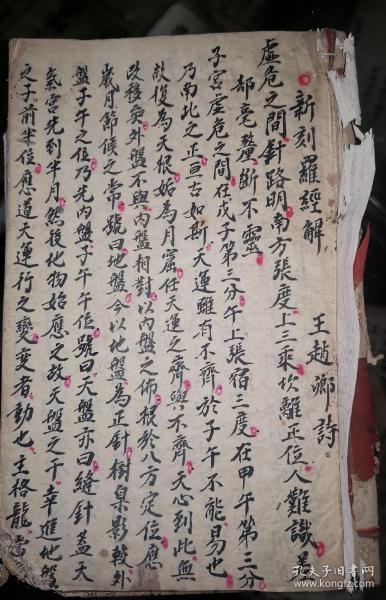 新刻羅經解
王趙卿詩
虛危之間針路明南方張度上三乘坎離正位人難識差
却毫釐斷不靈
子宮虛危之間在戊子第三分午上張宿三度在甲午第三分
乃南北之正亘古如斯天運雖有不齊於子午不能易也
故復為天根姤為月窟任天運之齊與不齊天心到此無
改移矣外盤不與內盤相對以內盤之佈根於八方定位應
歲月節候之常號曰地盤今以地盤為正針樹臬影較外
盤子午之位乃先內盤子午午位號曰天盤亦曰縫針蓋天
氣宮先到半月然後化物始應之故天盤之干幸進地盤
之子前半位應道天運行之變變者動也主格龍當
孔夫子旧书网